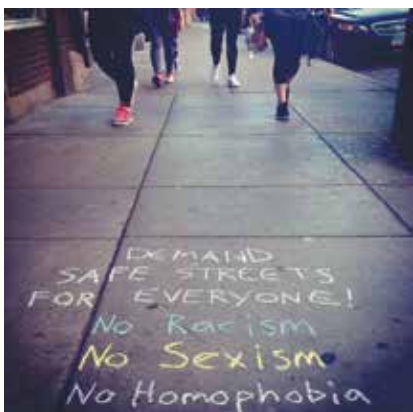 DEMAND
SAFE STREETS
FOR EVERYONE!
No Racism
No Sexism
No Homophobia